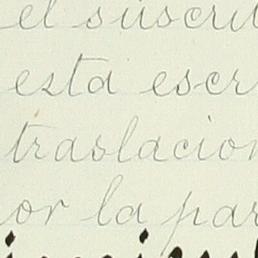 el suscri
esta escr
traslacion
or la par